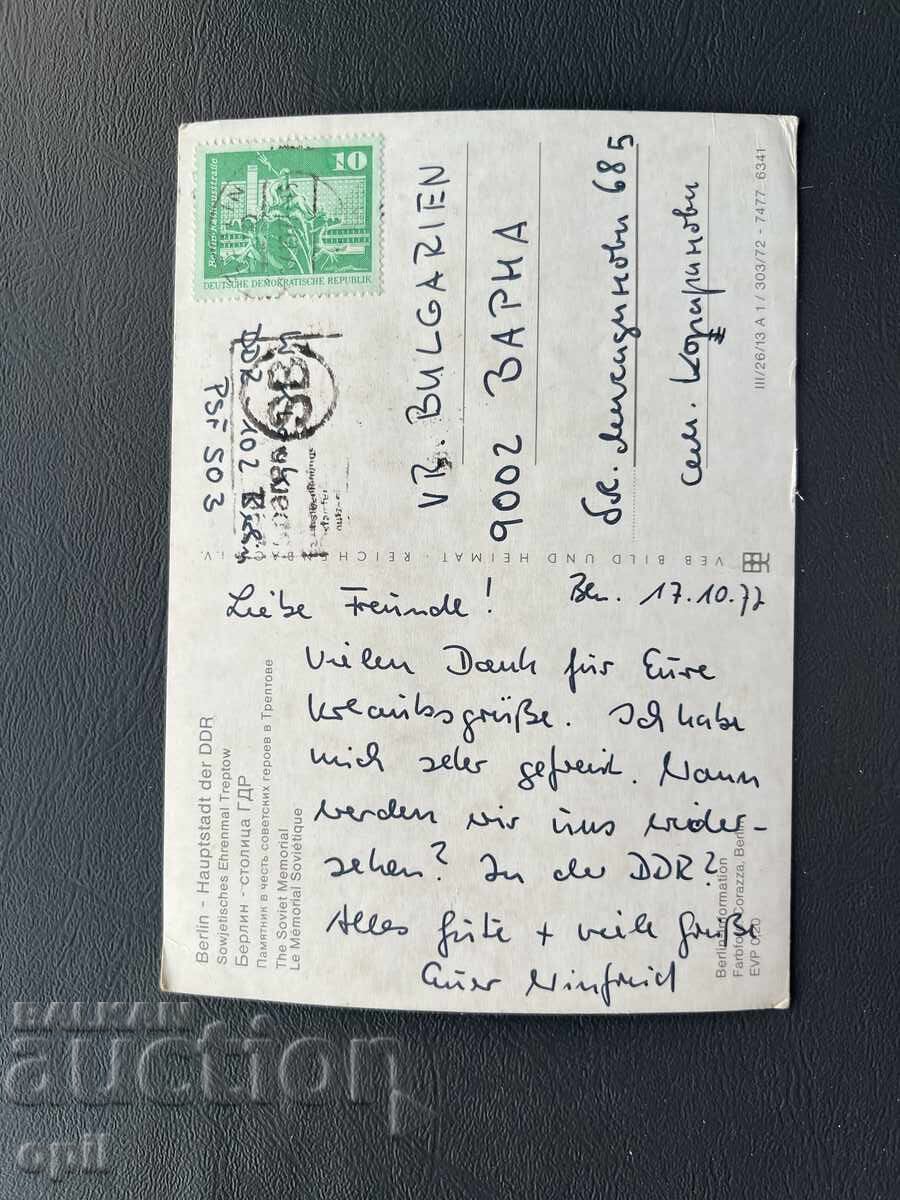 Berlin-Rathausstraße
10
DEUTSCHE DEMOKRATISCHE REPUBLIK
DDR 102 Berlin
PSF 503
VR. BULGARIEN
9002 ВАРНА
685
сем.
III/26/13 A 1 / 303/72 - 7477 6341
VEB BILD UND HEIMAT · REICHENBACH i.V.
Liebe Freunde! Bln. 17.10.77
Vielen Dank für Eure
Urlaubsgrüße. Ich habe
mich sehr gefreut. Wann
werden wir uns wieder-
sehen? In der DDR?
Alles Gute + viele Grüße
Euer Winfried
Berlin - Hauptstadt der DDR
Sowjetisches Ehrenmal Treptow
Берлин - столица ГДР
Памятник в честь советских героев в Трептове
The Soviet Memorial
Le Mémorial Soviétique
Berlin-Information
Farbfoto: Corazza, Berlin
EVP 0,20
BALKAN
auction
opil